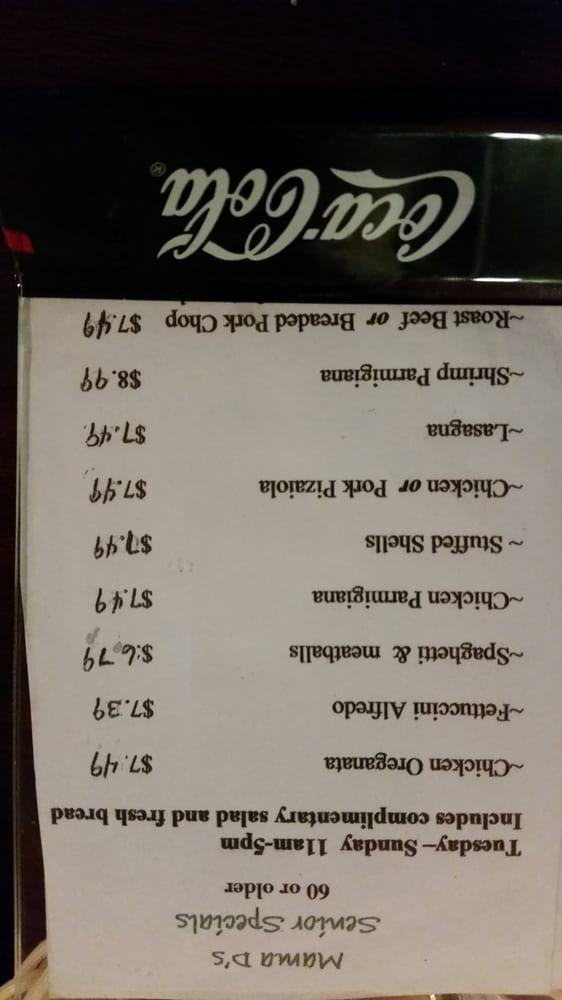 Mama D's
Senior Specials
60 or older
Tuesday–Sunday 11am-5pm
Includes complimentary salad and fresh bread
~Chicken Oreganata $7.49
~Fettuccini Alfredo $7.39
~Spaghetti & meatballs $6.79
~Chicken Parmigiana $7.49
~ Stuffed Shells $7.49
~Chicken or Pork Pizaiola $7.49
~Lasagna $7.49
~Shrimp Parmigiana $8.99
~Roast Beef or Breaded Pork Chop $7.49
Coca-Cola®